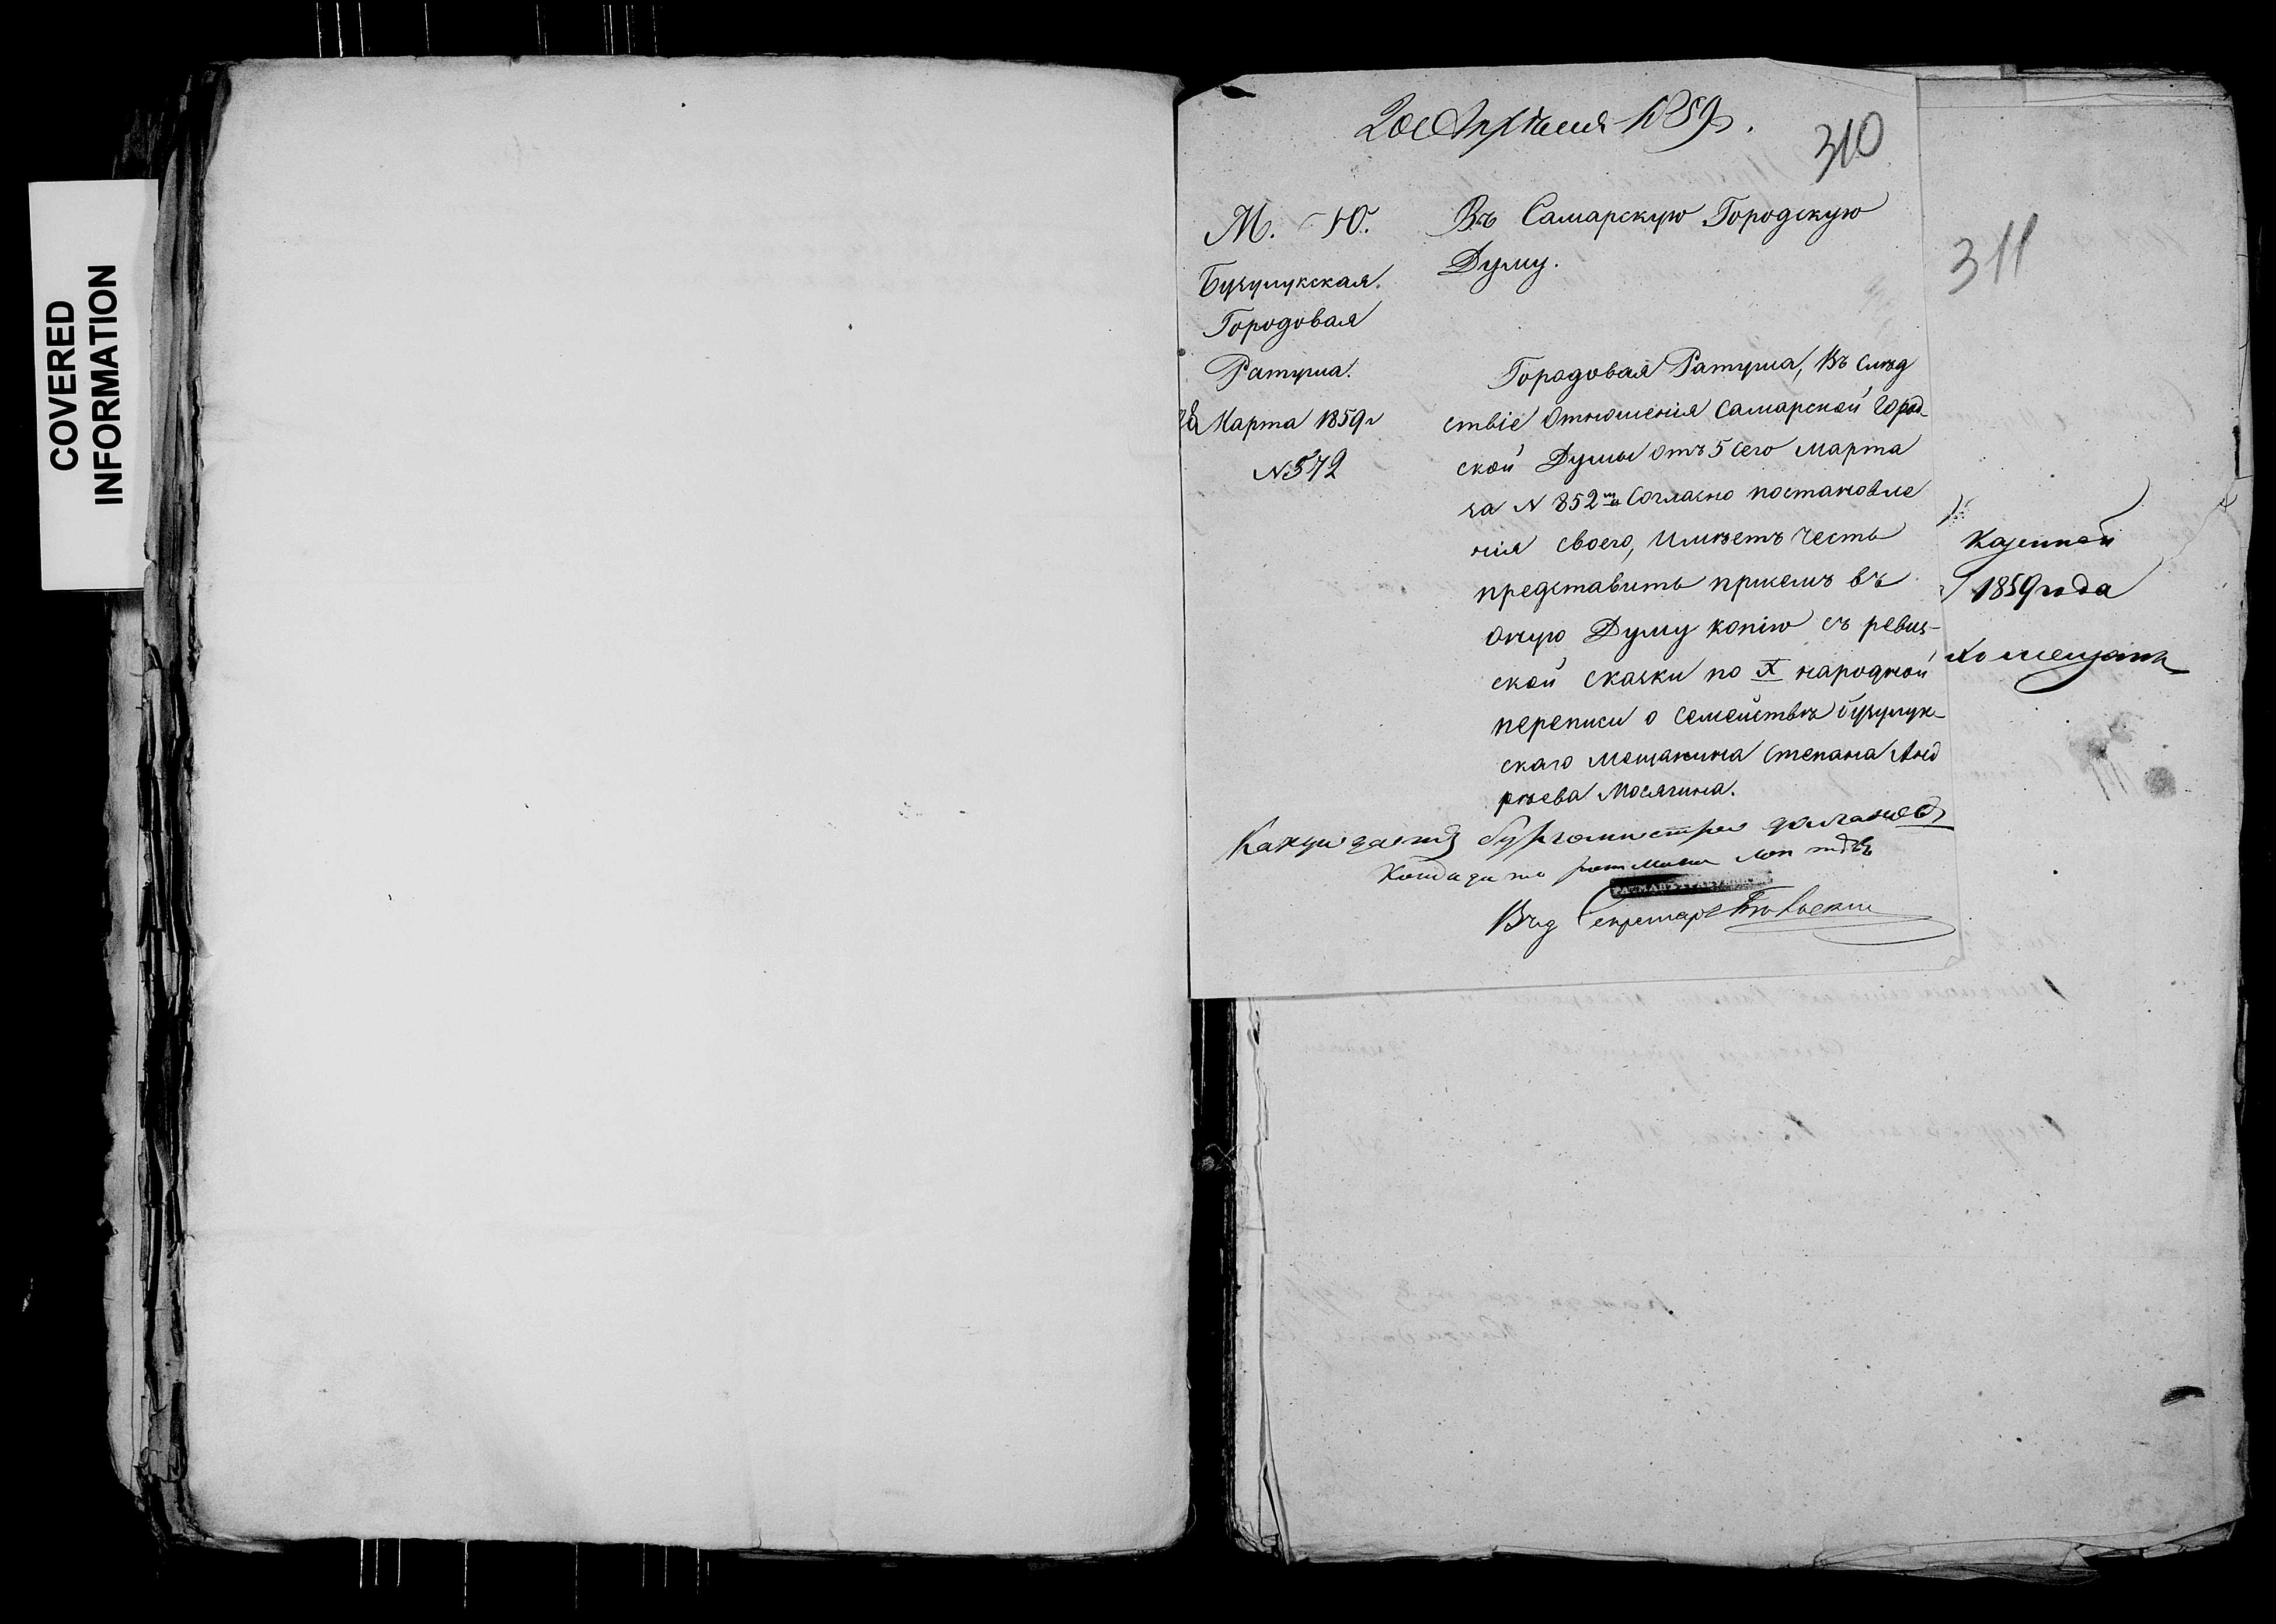 COVERED
INFORMATION
20 Апрѣля 1859 г.
310
М. Ю.
Бузулукская
Городовая
Ратуша.
Марта 1859 г
N 572
Въ Самарскую Городскую
Думу.
Городовая Ратуша, въ слѣд
ствіе отношенія Самарской Город-
ской Думы отъ 5 сего марта
за N 852 согласно постановле
нія своего, имѣетъ честь
представить присемъ въ
оную Думу копію съ ревиз-
ской сказки по X народной
переписи о семействѣ бузулук-
скаго мещанина Степана Анд
рѣева Мосягина.
Бургомистра
Кандидатъ ратмана
Секретарь
311
Казенной
1859 года